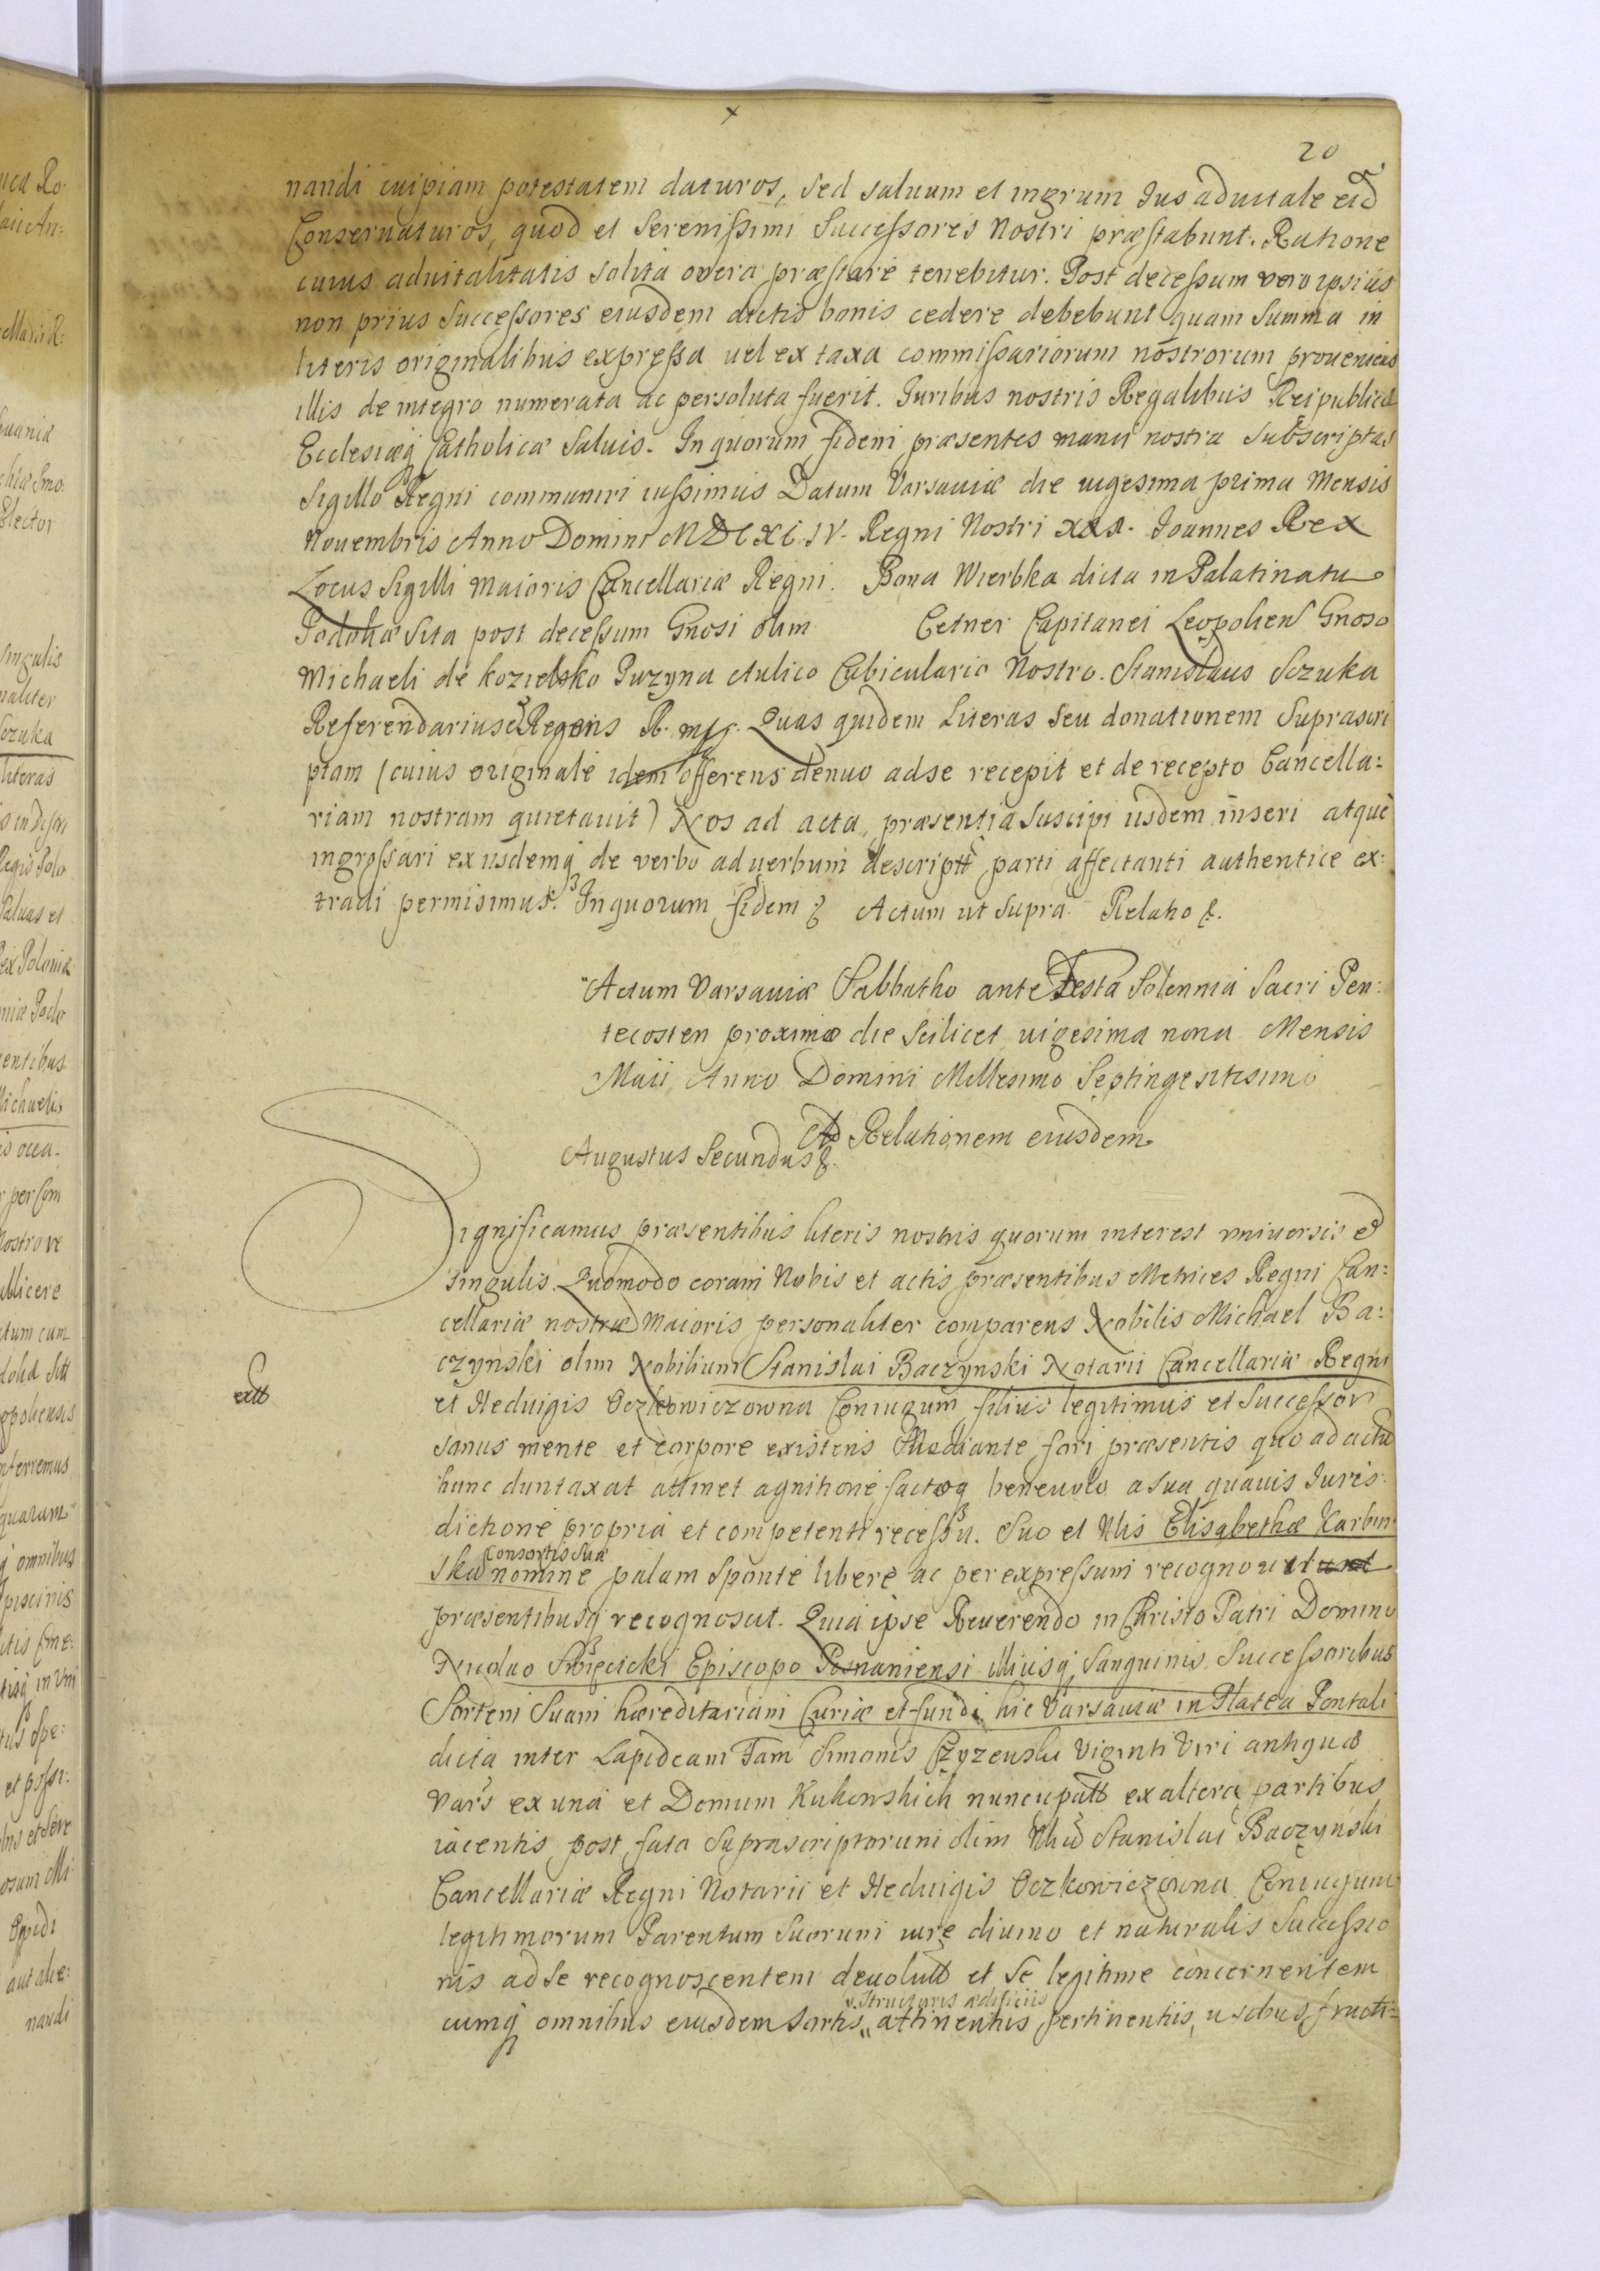 20
nandi cuipiam potestatem daturos, sed saluum et ingrum Ius aduitale eid
Conseruaturos, quod et Serenissimi Successores Nostri præstabunt. Ratione
cuius aduitalitatis solita onera præstare tenebitur. Post decessum vero ipsius
non prius Successores eiusdem dictis bonis cedere debebunt quam Summa in
literis originalibus expressa uel ex taxa commissariorum nostrorum proueniens
illis de integro numerata ac persoluta fuerit. Iuribus nostris Regalibus Reipublicæ
Ecclesiæq Catholicæ Saluis. In quorum fidem præsentes manu nostra Subscriptas
Sigillo Regni communiri iussimus Datum Varsauiæ die uigesima prima Mensis
Nouembris Anno Domini MDCXCIV. Regni Nostri XXI. Ioannes Rex
Locus Sigilli Maioris Cancellariæ Regni. Bona Wierbka dicta in Palatinatu
Podoliæ Sita post decessum Gnosi olim Cetner Capitanei Leopolien Gnoso
Michaeli de Kozielsko Puzyna Aulico Cubiculario Nostro. Stanislaus Sczuka
Referendarius et Regens R. mp. Quas quidem Literas seu donationem Suprascri
ptam (cuius originale idem offerens denuo ad se recepit et de recepto Cancella:
riam nostram quietauit) Nos ad acta præsentia Suscipi iisdem inseri atque
ingrossari ex iisdemq de verbo ad verbum descriptt parti affectanti authentice ex:
tradi permisimus. In quorum fidem & Actum ut Supra Relatio &.
Actum Varsauiæ Sabbatho ante Festa Solennia Sacri Pen:
tecosten proximo die Scilicet uigesima nona Mensis
Maii Anno Domini Millesimo Septingentesimo
Ad Relationem eiusdem
Augustus Secundus &.
Significamus præsentibus literis nostris quorum interest vniuersis et
singulis. Quomodo coram Nobis et actis præsentibus Metrices Regni Can:
cellariæ nostræ Maioris personaliter comparens Nobilis Michael Ba:
czynski olim Nobilium Stanislai Baczynski Notarii Cancellariæ Regni
et Heduigis Oczkowiczowna Coniugum filius legitimus et Successor
sanus mente et corpore existens Mediante fori præsentis quo ad actu
hunc duntaxat attinet agnitione factaq beneuolo a sua quauis Iuris:
dictione propria et competenti recessu. Suo et Nlis Elisabethæ Karbin
skæ Consortis Suæ nomine palam sponte libere ac per expressum recognouit
præsentibusq recognoscit. Quia ipse Reuerendo in Christo Patri Domino
Nicolao Swięcicki Episcopo Posnaniensi illiusq Sanguinis Successoribus
Sortem Suam hæreditariam Curiæ et fundi hic Varsauiæ in Platea Pontali
dicta inter Lapideam Fam Simonis Czyzewski Viginti Viri antiquæ
Vars ex una et Domum Kukowskich nuncupatt ex altera partibus
iacentis post fata Suprascriptorum olim Nliu Stanislai Baczynski
Cancellariæ Regni Notarii et Heduigis Oczkowiczowna Coniugum
legitimorum Parentum Suorum iure diuino et naturalis Successio
nis ad se recognoscentem deuolutt et Se legitime concernentem
cumq omnibus eiusdem Sortis Structuris ædificiis attinentiis pertinentiis, usibus, fructi=